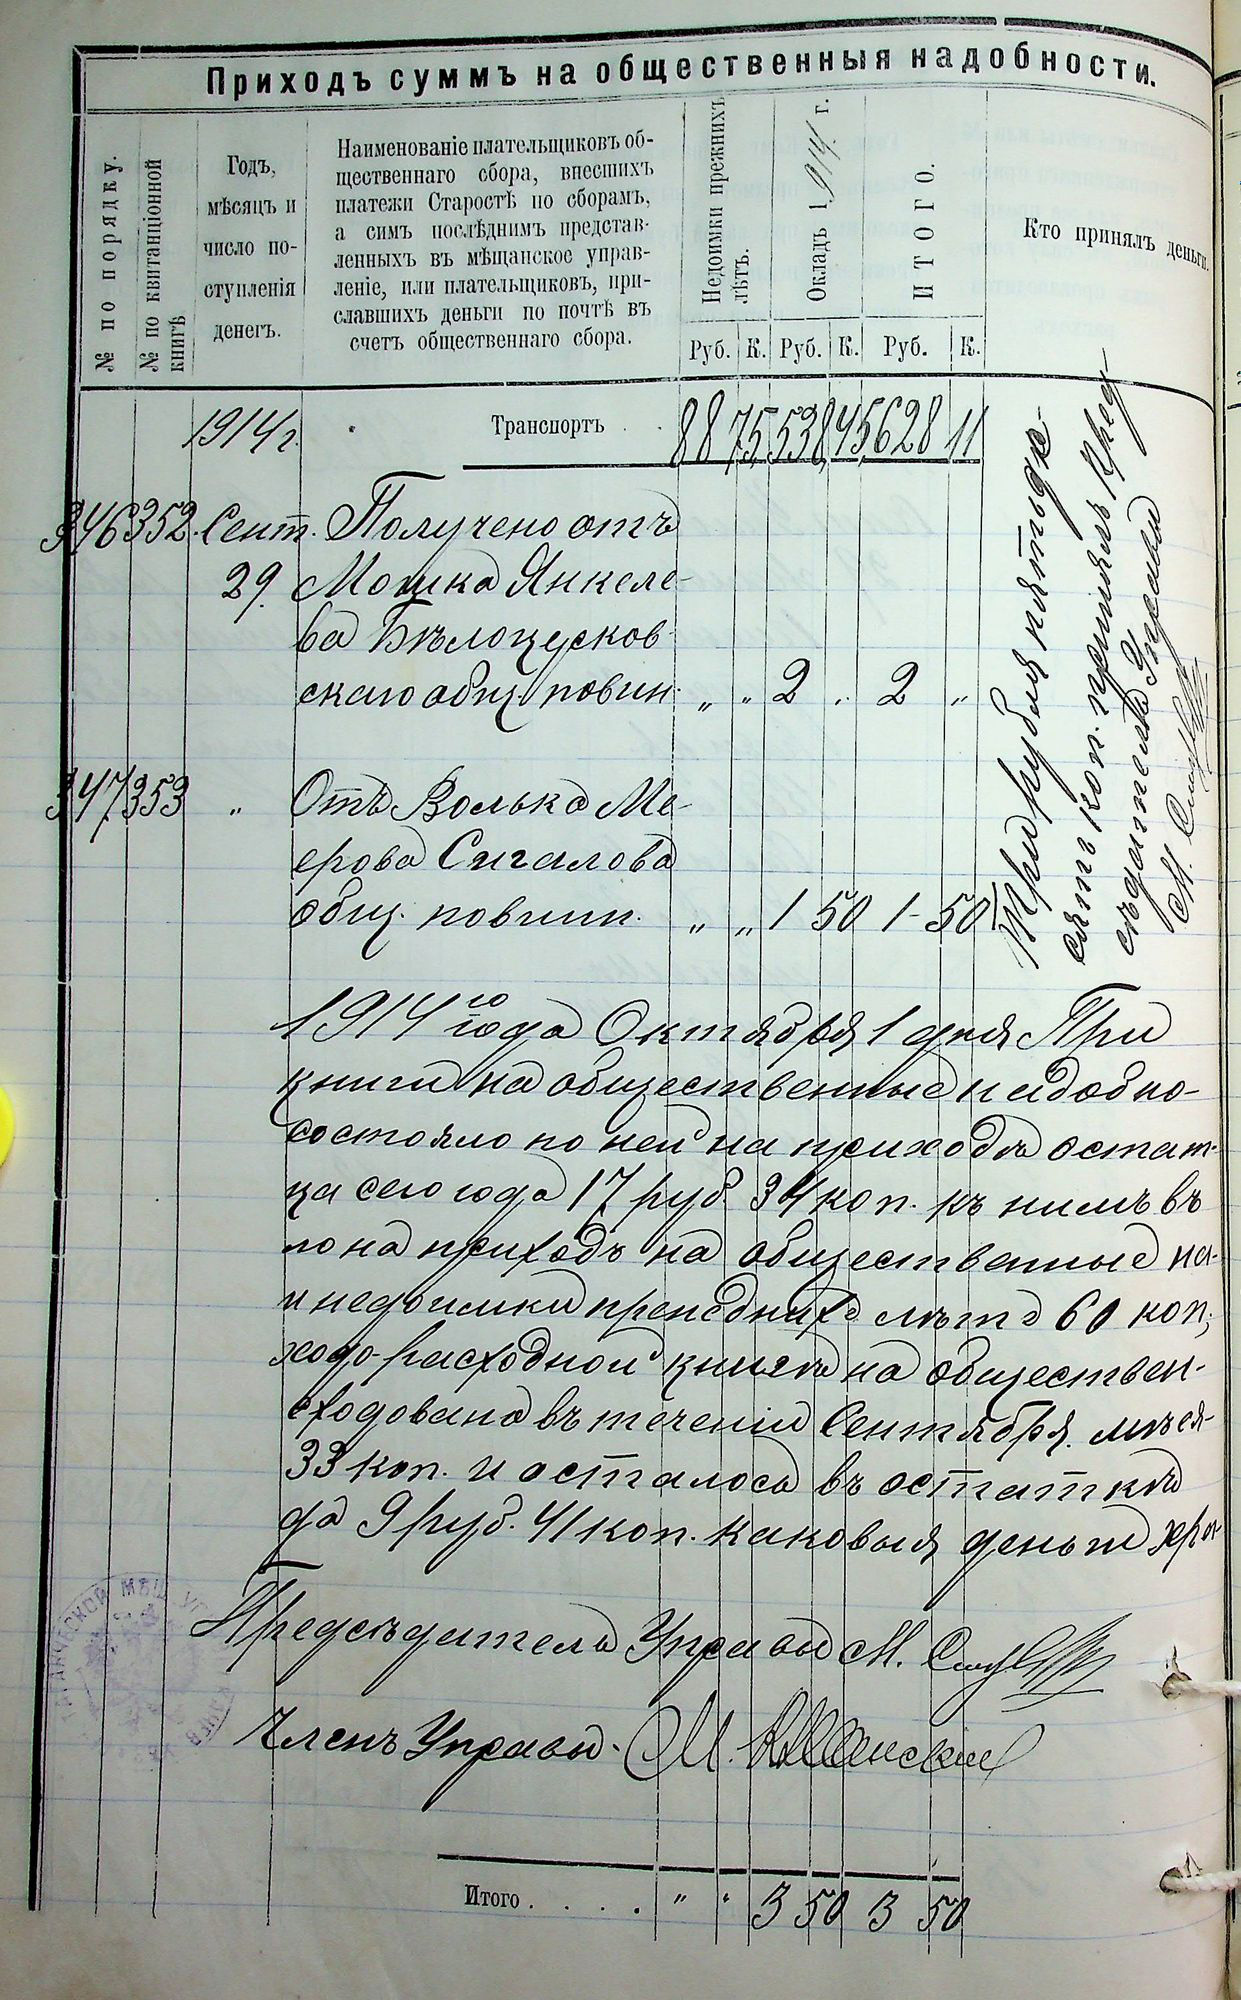 Приходъ суммъ на общественныя надобности.
№ по порядку.
№ по квитанціонной
книгѣ
Годъ,
мѣсяцъ и
число по-
ступленія
денегъ.
Наименованіе плательщиковъ об-
щественнаго сбора, внесшихъ
платежи Старостѣ по сборамъ,
а симъ послѣднимъ представ-
ленныхъ въ мѣщанское управ-
леніе, или плательщиковъ, при-
славшихъ деньги по почтѣ въ
счетъ общественнаго сбора.
Недоимки прежнихъ
лѣтъ.
Окладъ 1914 г.
ИТОГО.
Кто принялъ деньги.
Руб. К. Руб. К. Руб. К.
1914 г. Транспортъ . . 88 75 538 45 628 11
346 352. Сент. Получено отъ
29. Мошка Янкеле-
ва Бѣлоцусков-
скаго общ. повин. „ „ 2 . 2 „
347 353 „ Отъ Волька Ме-
ерова Сигалова
общ. повин. „ „ 1 50 1 - 50
Три рубля пятьде-
сятъ коп. принялъ Пред-
сѣдатель Управы
М.
1914 го года Октября 1 дня При
книги на общественные надобно-
состояло по ней на приходѣ остат-
ка сего года 17 руб. 34 коп. къ нимъ въ
ло на приходъ на общественные на-
и недоимки прежнихъ лѣтъ 60 коп.;
ходо-расходной книгѣ на обществен-
сходовано въ теченіи Сентября мѣся-
33 коп. и осталось въ остаткѣ
да 9 руб. 41 коп. каковыя деньги хра-
Предсѣдатель Управы М.
Членъ Управы. М.
Итого . . . . „ „ 3 50 3 50